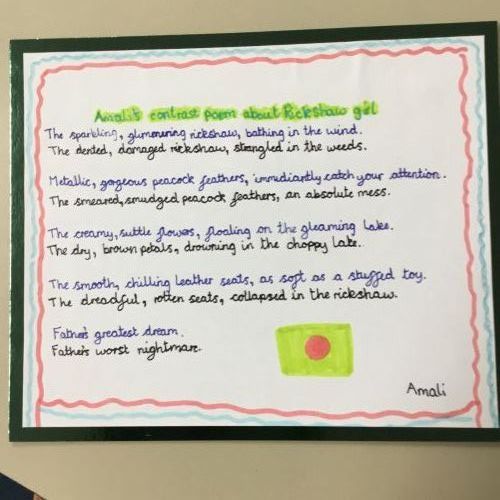 Amali's contrast poem about Rickshaw girl
The sparkling, glimmering rickshaw, bathing in the wind.
The dented, damaged rickshaw, strangled in the weeds.
Metallic, gorgeous peacock feathers, immediantly catch your attention.
The smeared, smudged peacock feathers, an absolute mess.
The creamy, suttle flowers, floating on the gleaming lake.
The dry, brown petals, drowning in the choppy lake.
The smooth, chilling leather seats, as soft as a stuffed toy.
The dreadful, rotten seats, collapsed in the rickshaw.
Father's greatest dream.
Father's worst nightmare.
Amali